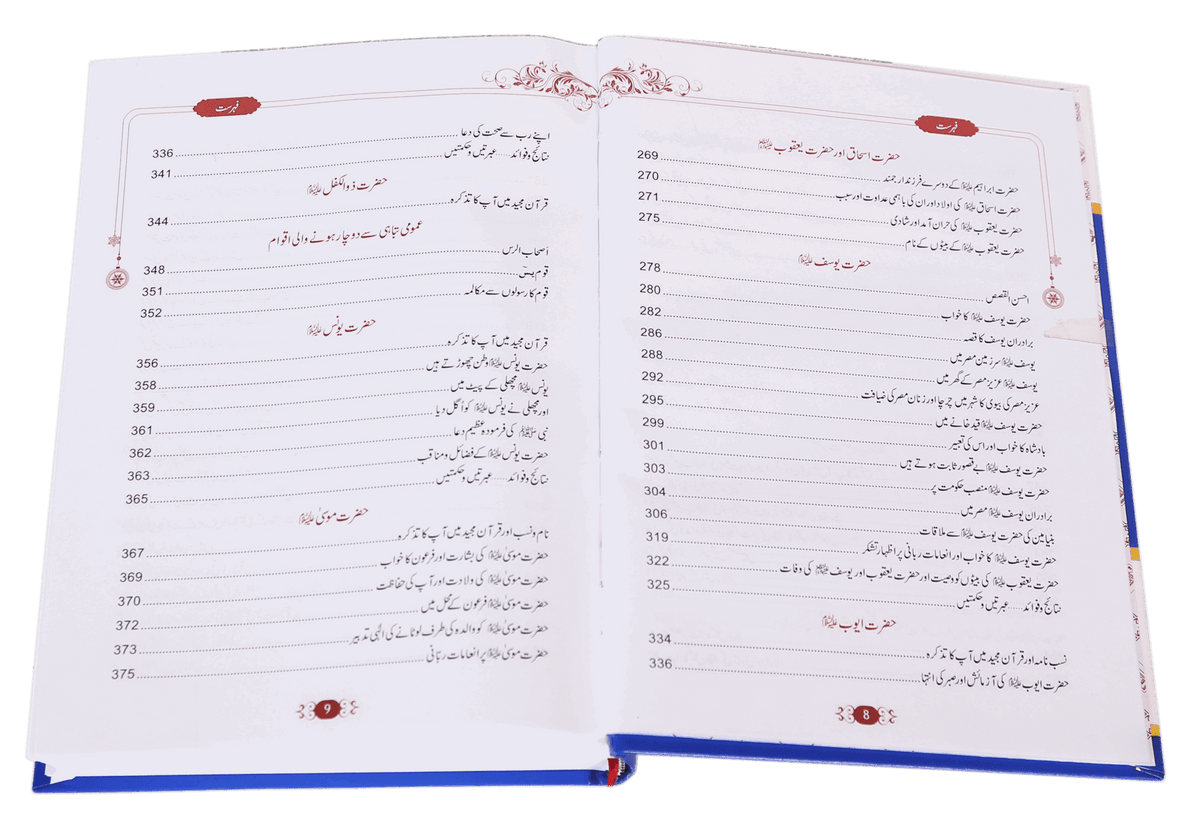 فہرست
حضرت اسحاق اور حضرت یعقوب علیہما السلام
حضرت ابراہیم علیہ السلام کے دوسرے فرزند ارجمند 269
حضرت اسحاق علیہ السلام کی اولاد اور ان کی باہمی عداوت اور سبب 270
حضرت یعقوب علیہ السلام کی حران آمد اور شادی 271
حضرت یعقوب علیہ السلام کے بیٹوں کے نام 275
حضرت یوسف علیہ السلام
احسن القصص 278
حضرت یوسف علیہ السلام کا خواب 280
برادران یوسف کا قصہ 282
یوسف علیہ السلام سرزمین مصر میں 286
یوسف علیہ السلام عزیز مصر کے گھر میں 288
عزیز مصر کی بیوی کا شہر میں چرچا اور زنان مصر کی ضیافت 292
حضرت یوسف علیہ السلام قید خانے میں 295
بادشاہ کا خواب اور اس کی تعبیر 299
حضرت یوسف علیہ السلام بے قصور ثابت ہوتے ہیں 301
حضرت یوسف علیہ السلام منصب حکومت پر 303
برادران یوسف علیہ السلام مصر میں 304
بنیامین کی حضرت یوسف علیہ السلام سے ملاقات 306
حضرت یوسف علیہ السلام کا خواب اور انعامات ربانی پر اظہار تشکر 319
حضرت یعقوب علیہ السلام کی بیٹوں کو وصیت اور حضرت یعقوب اور یوسف علیہما السلام کی وفات 322
نتائج و فوائد ...... عبرتیں و حکمتیں 325
حضرت ایوب علیہ السلام
نسب نامہ اور قرآن مجید میں آپ کا تذکرہ 334
حضرت ایوب علیہ السلام کی آزمائش اور صبر کی انتہا 336
8
فہرست
اپنے رب سے صحت کی دعا 336
نتائج و فوائد ...... عبرتیں و حکمتیں 341
حضرت ذوالکفل علیہ السلام
قرآن مجید میں آپ کا تذکرہ 344
عمومی تباہی سے دوچار ہونے والی اقوام
اصحاب الرس 348
قوم یس 351
قوم کا رسولوں سے مکالمہ 352
حضرت یونس علیہ السلام
قرآن مجید میں آپ کا تذکرہ 356
حضرت یونس علیہ السلام وطن چھوڑتے ہیں 358
یونس علیہ السلام مچھلی کے پیٹ میں 359
اور مچھلی نے یونس علیہ السلام کو اگل دیا 361
نبی ﷺ کی فرمودہ عظیم دعا 362
حضرت یونس علیہ السلام کے فضائل و مناقب 363
نتائج و فوائد ...... عبرتیں و حکمتیں 365
حضرت موسیٰ علیہ السلام
نام و نسب اور قرآن مجید میں آپ کا تذکرہ 367
حضرت موسیٰ علیہ السلام کی بشارت اور فرعون کا خواب 369
حضرت موسیٰ علیہ السلام کی ولادت اور آپ کی حفاظت 370
حضرت موسیٰ علیہ السلام فرعون کے محل میں 372
حضرت موسیٰ علیہ السلام کو والدہ کی طرف لوٹانے کی الٰہی تدبیر 373
حضرت موسیٰ علیہ السلام پر انعامات ربانی 375
9